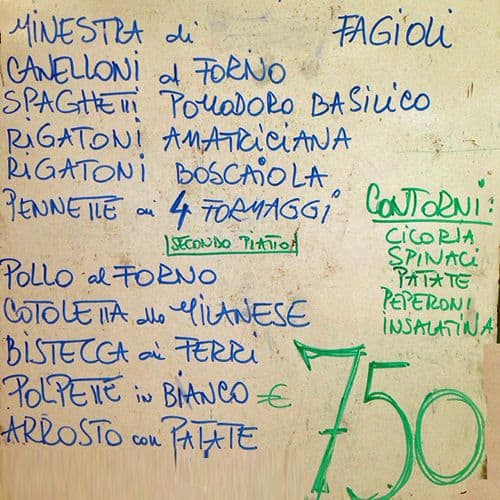 MINESTRA di FAGIOLI
CANELLONI al FORNO
SPAGHETTI POMODORO BASILICO
RIGATONI AMATRICIANA
RIGATONI BOSCAIOLA
PENNETTE ai 4 FORMAGGI
SECONDO PIATTO:
POLLO al FORNO
COTOLETTA alla MILANESE
BISTECCA ai FERRI
POLPETTE in BIANCO
ARROSTO con PATATE
CONTORNI:
CICORIA
SPINACI
PATATE
PEPERONI
INSALATINA
€ 750